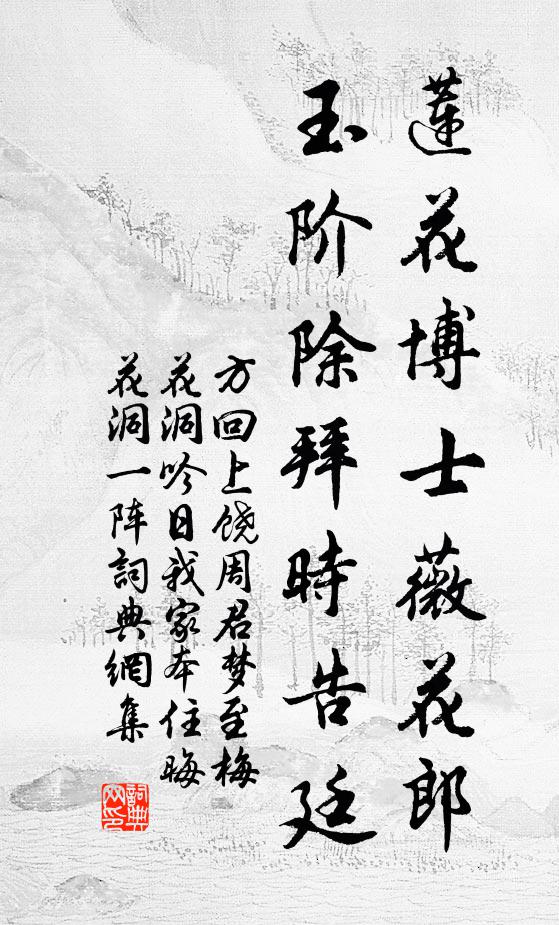 蓮花博士薇花郎
玉阶除拜時告廷
方回上饶周君梦至梅
花洞吟日我家本住晦
花洞一阵詞典網集
詞典网印